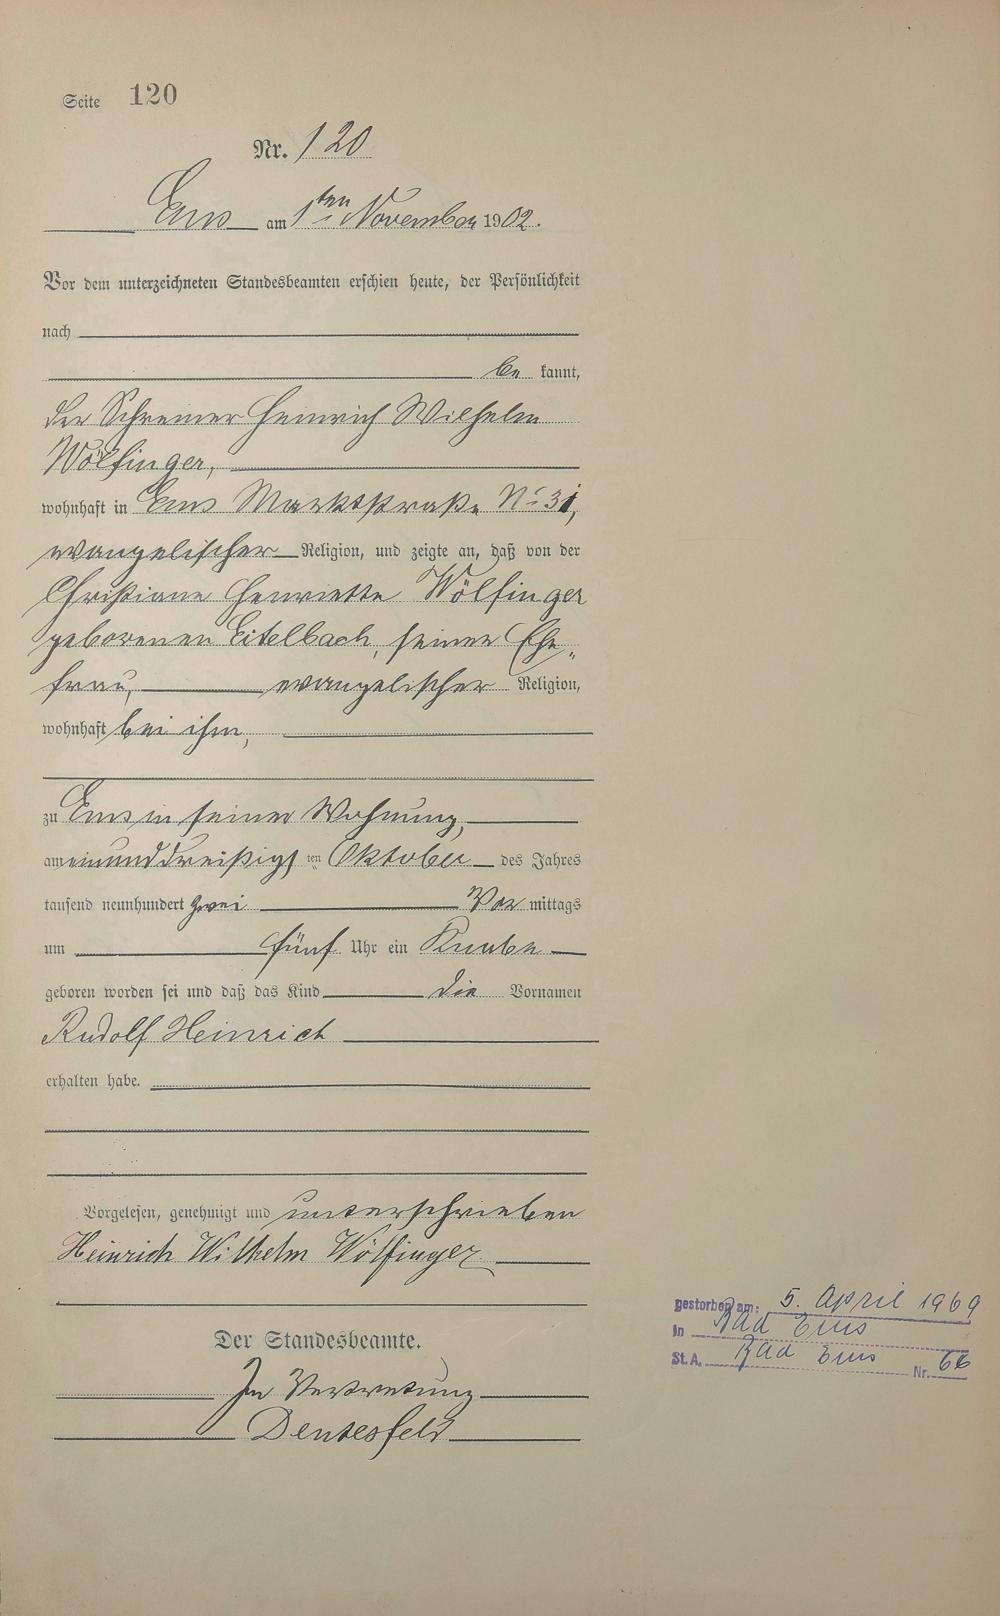 Seite 120
Nr. 120
Ems am 1ten November 1902.
Vor dem unterzeichneten Standesbeamten erschien heute, der Persönlichkeit
nach
be kannt,
der Schreiner Heinrich Wilhelm
Wölfinger,
wohnhaft in Ems Marktstraße No 31,
evangelischer Religion, und zeigte an, daß von der
Christiane Henriette Wölfinger
geborenen Eitelbach, seiner Ehe„
frau, evangelischer Religion,
wohnhaft bei ihm,
zu Ems in seiner Wohnung,
am einunddreißigs ten Oktober des Jahres
tausend neunhundert zwei Vor mittags
um fünf Uhr ein Knabe
geboren worden sei und daß das Kind die Vornamen
Rudolf Heinrich
erhalten habe.
Vorgelesen, genehmigt und unterschrieben
Heinrich Wilhelm Wölfinger
Der Standesbeamte.
In Vertretung
gestorben am: 5. April 1969
in Bad Ems
St. A. Bad Ems Nr. 66